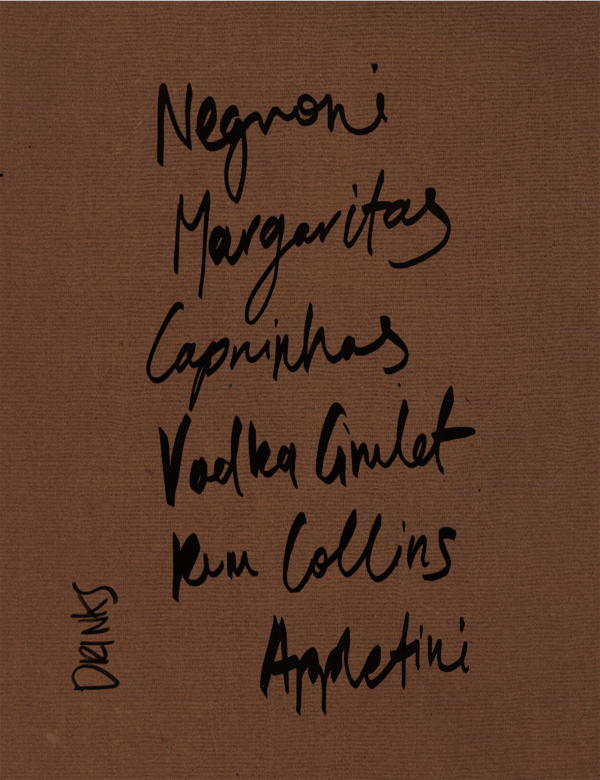 Negroni
Margaritas
Caprinhas
Vodka Gimlet
Rum Collins
Appletini
DRINKS